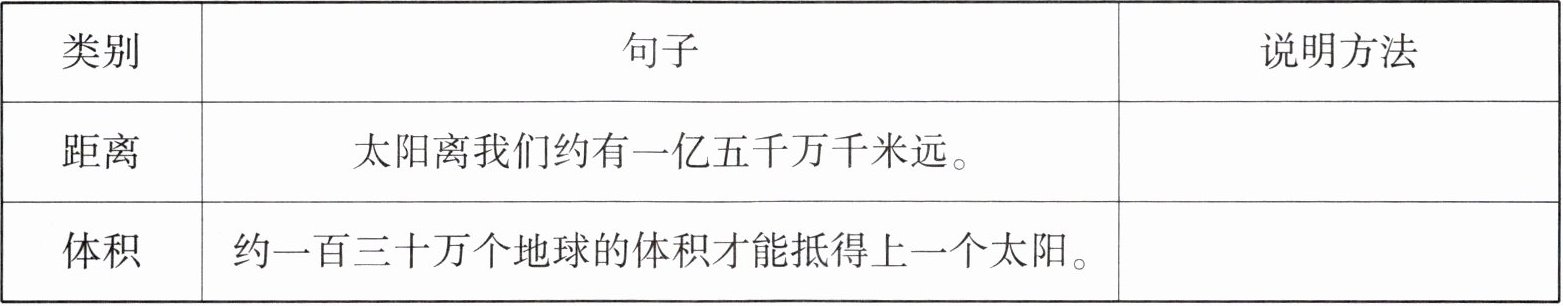 类别 句子 说明方法
距离 太阳离我们约有一亿五千万千米远。
体积 约一百三十万个地球的体积才能抵得上一个太阳。